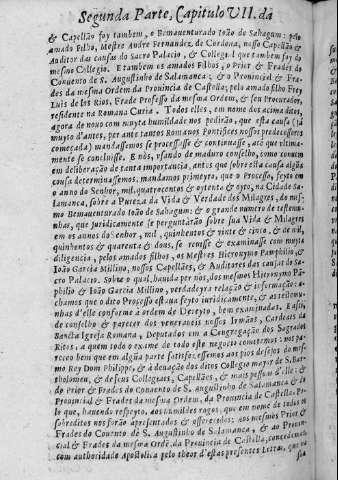 Segunda Parte, Capitulo VII. da
& Capellão foy tambem, o Bemaventurado Ioão de Sahagum: pelo
amado Filho, Mestre Andre Fernandez de Cordona, nosso Capellão &
Auditor das causas do Sacro Palacio, & Collegial que tambem foy do
mesmo Collegio. E tambem os amados Filhos, o Prior & Frades do
Convento de S. Augustinho de Salamanca; & o Provincial & Fra-
des da mesma Ordem da Provincia de Castella; pelo amado filho Frey
Luis de los Rios, Frade Professo da mesma Ordem, & seu Procurador,
residente na Romana Curia. Todos elles, em nome dos acima ditos,
agora de novo com muyta humildade nos pedirão, que esta causa (já
muyto d'antes, per ante tantos Romanos Pontifices nossos predecessores
começada) mandassemos se processasse & continuasse, até que ultima-
mente se concluisse. E nós, usando de maduro conselho, como convem
em deliberação de tanta importancia, antes que sobre esta causa algũa
cousa determinassemos, mandamos primeyro, que o Processo, feyto em
o anno do Senhor, mil, quatrocentos & oytenta & oyto, na Cidade Sa-
lamanca, sobre a Pureza da Vida & Verdade dos Milagres, do mes-
mo Bemaventurado Ioão de Sahagum: & o grande numero de testemu-
nhas, que juridicamente se perguntárão sobre sua Vida & Milagres
em os annos do Senhor, mil, quinhentos & vinte & cinco, & de mil,
quinhentos & quarenta & dous, se visse & examinasse com muyta
diligencia, pelos amados filhos, os Mestres Hieronymo Pamphilio, &
Ioão Garcia Millino, nossos Capellães, & Auditores das causas do Sa-
cro Palacio. Sobre o qual, havida por nós, dos mesmos Hieronymo Pã-
philio & Ioão Garcia Millino, verdadeyra relação & informação: a-
chamos que o dito Processo estava feyto juridicamente, & as testemu-
nhas d'elle conforme à ordem de Dereyto, bem examinadas. E assi,
de conselho & parecer dos veneraveis nossos Irmãos, Cardeais da
Sancta Igreja Romana, Deputados em a Congregação dos Sagrados
Ritos, a quem todo o exame de todo este negocio cometemos: nos pa-
receo bem que em algũa parte satisfizessemos aos pios desejos do mes-
mo Rey Dom Philippe, & à devação dos ditos Collegio mayor de S. Bar-
tholomeu, & de seus Collegiaes, Capellães, & mais pessoas d'elle: &
do Prior & Frades do Convento de S. Augustinho de Salamanca & do
Provincial & Frades da mesma Ordem, da Provincia de Castella. Pe-
lo que, havendo respeyto, aos humildes rogos, que em nome de todos os
sobreditos nos forão apresentados & offerecidos: aos mesmos Prior &
Frades do Convento de S. Augustinho de Salamanca, & ao Provin-
cial & Frades da mesma Ordẽ, da Provincia de Castella, concedemos
com authoridade Apostolica pelo theor d'estas presentes Letras, que na
sua